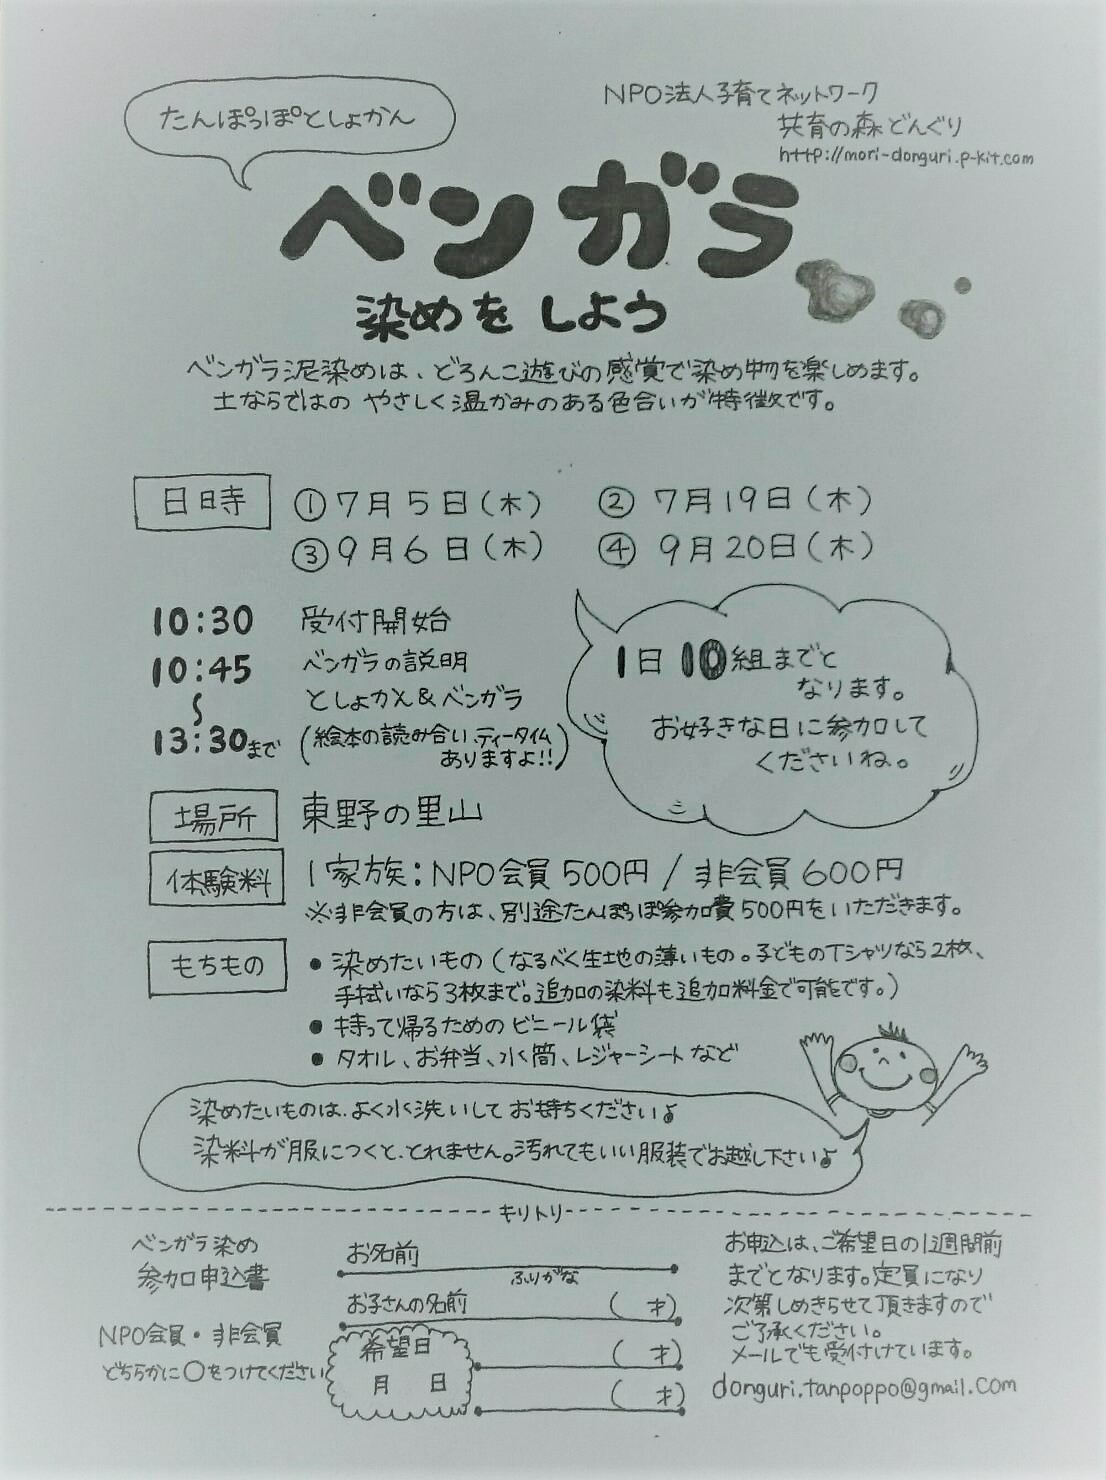 たんぽっぽとしょかん
NPO法人子育てネットワーク
共育の森どんぐり
http://mori-donguri.p-kit.com
ベンガラ
染めをしよう
ベンガラ泥染めは、どろんこ遊びの感覚で染め物を楽しめます。
土ならではの やさしく温かみのある色合いが特徴です。
日時
①7月5日(木) ②7月19日(木)
③9月6日(木) ④9月20日(木)
10:30 受付開始
10:45 ベンガラの説明
〜 としょかん&ベンガラ
13:30まで (絵本の読み合い、ティータイム
ありますよ!!)
1日10組までと
なります。
お好きな日に参加して
くださいね。
場所 東野の里山
体験料 1家族:NPO会員500円/非会員600円
※非会員の方は、別途たんぽっぽ参加費500円をいただきます。
もちもの
●染めたいもの(なるべく生地の薄いもの。子どものTシャツなら2枚、
手拭いなら3枚まで。追加の染料も追加料金で可能です。)
●持って帰るためのビニール袋
●タオル、お弁当、水筒、レジャーシートなど
染めたいものは、よく水洗いしてお持ちください♪
染料が服につくと、とれません。汚れてもいい服装でお越し下さい♪
キリトリ
ベンガラ染め
参加申込書
NPO会員・非会員
どちらかに○をつけてください
お名前
ふりがな
お子さんの名前 ( 才)
希望日
月 日
( 才)
( 才)
お申込は、ご希望日の1週間前
までとなります。定員になり
次第しめきらせて頂きますので
ご了承ください。
メールでも受付けています。
donguri.tanpoppo@gmail.com